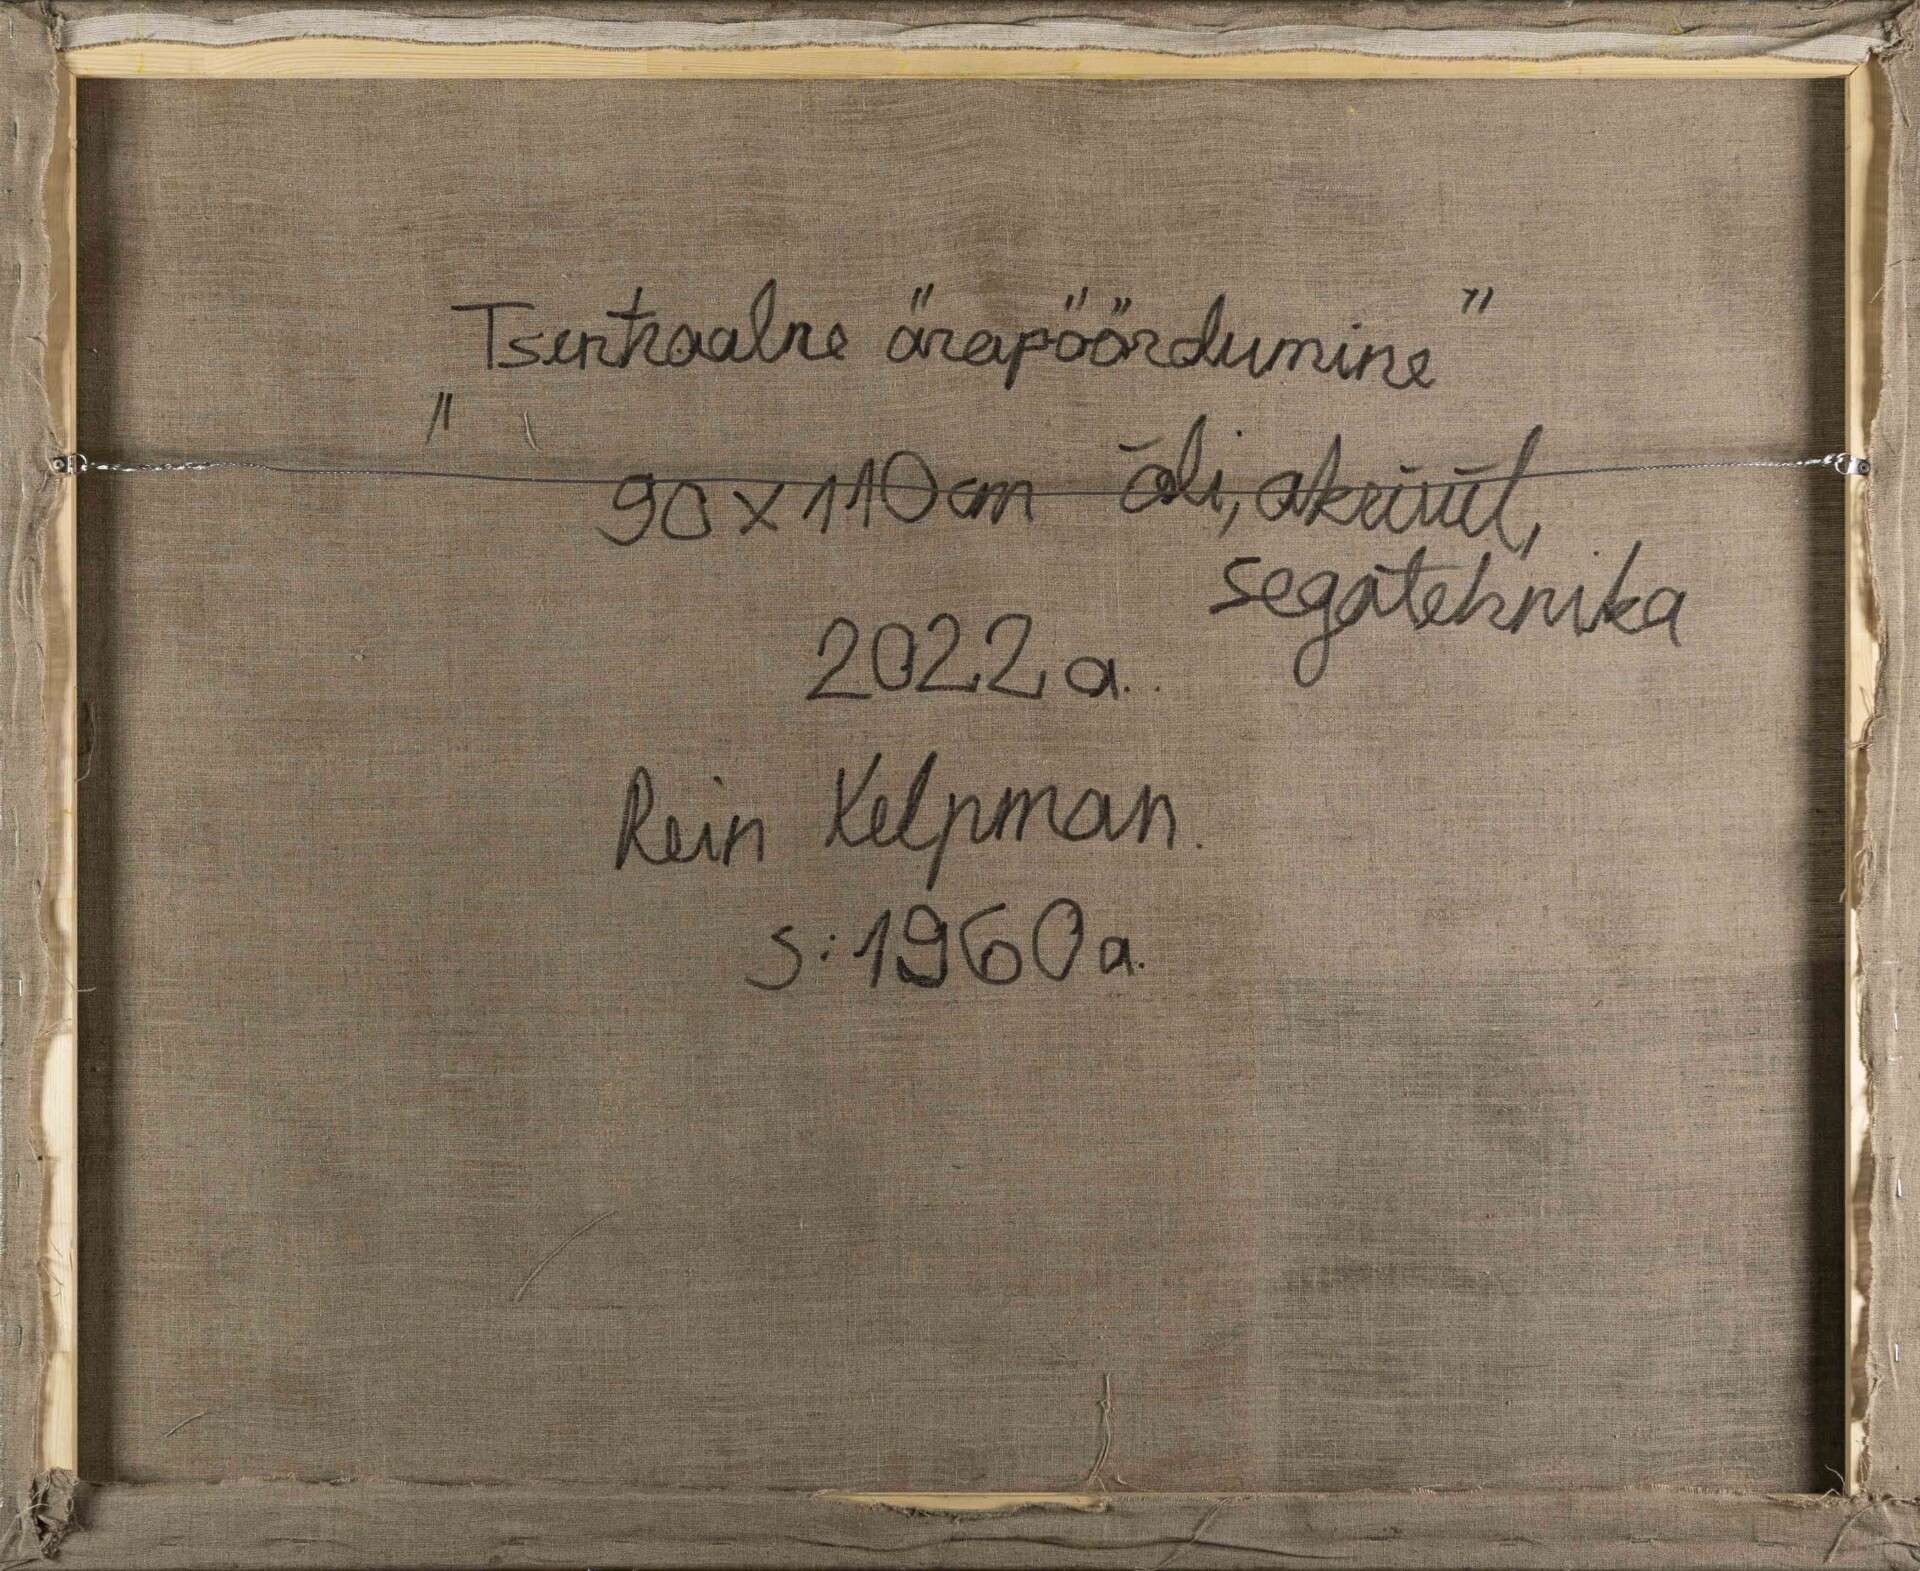 "Tsentraalne ärapöördumine"
90 x 110 cm õli, akrüül,
segatehnika
2022 a.
Rein Kelpman.
s. 1960 a.